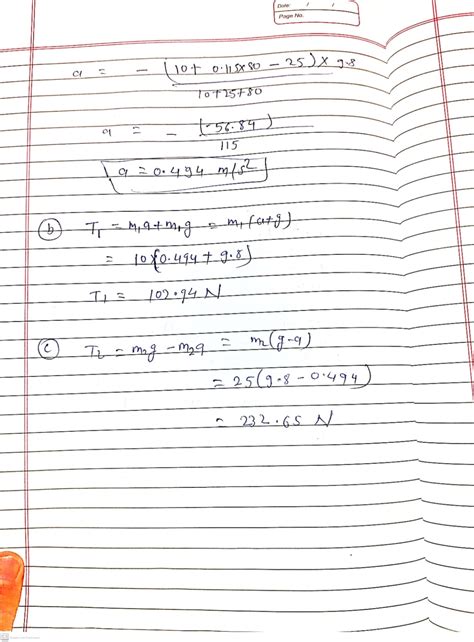 Date: / /
Page No.
a = - (10 + 0.115x80 - 25) x 9.8
10+25+80
a = - (-56.84)
115
a = 0.494 m/s²
(b) T₁ = m₁a + m₁g = m₁(a+g)
= 10x(0.494 + 9.8)
T₁ = 102.94 N
(c) T₂ = m₂g - m₂a = m₂(g-a)
= 25(9.8 - 0.494)
= 232.65 N